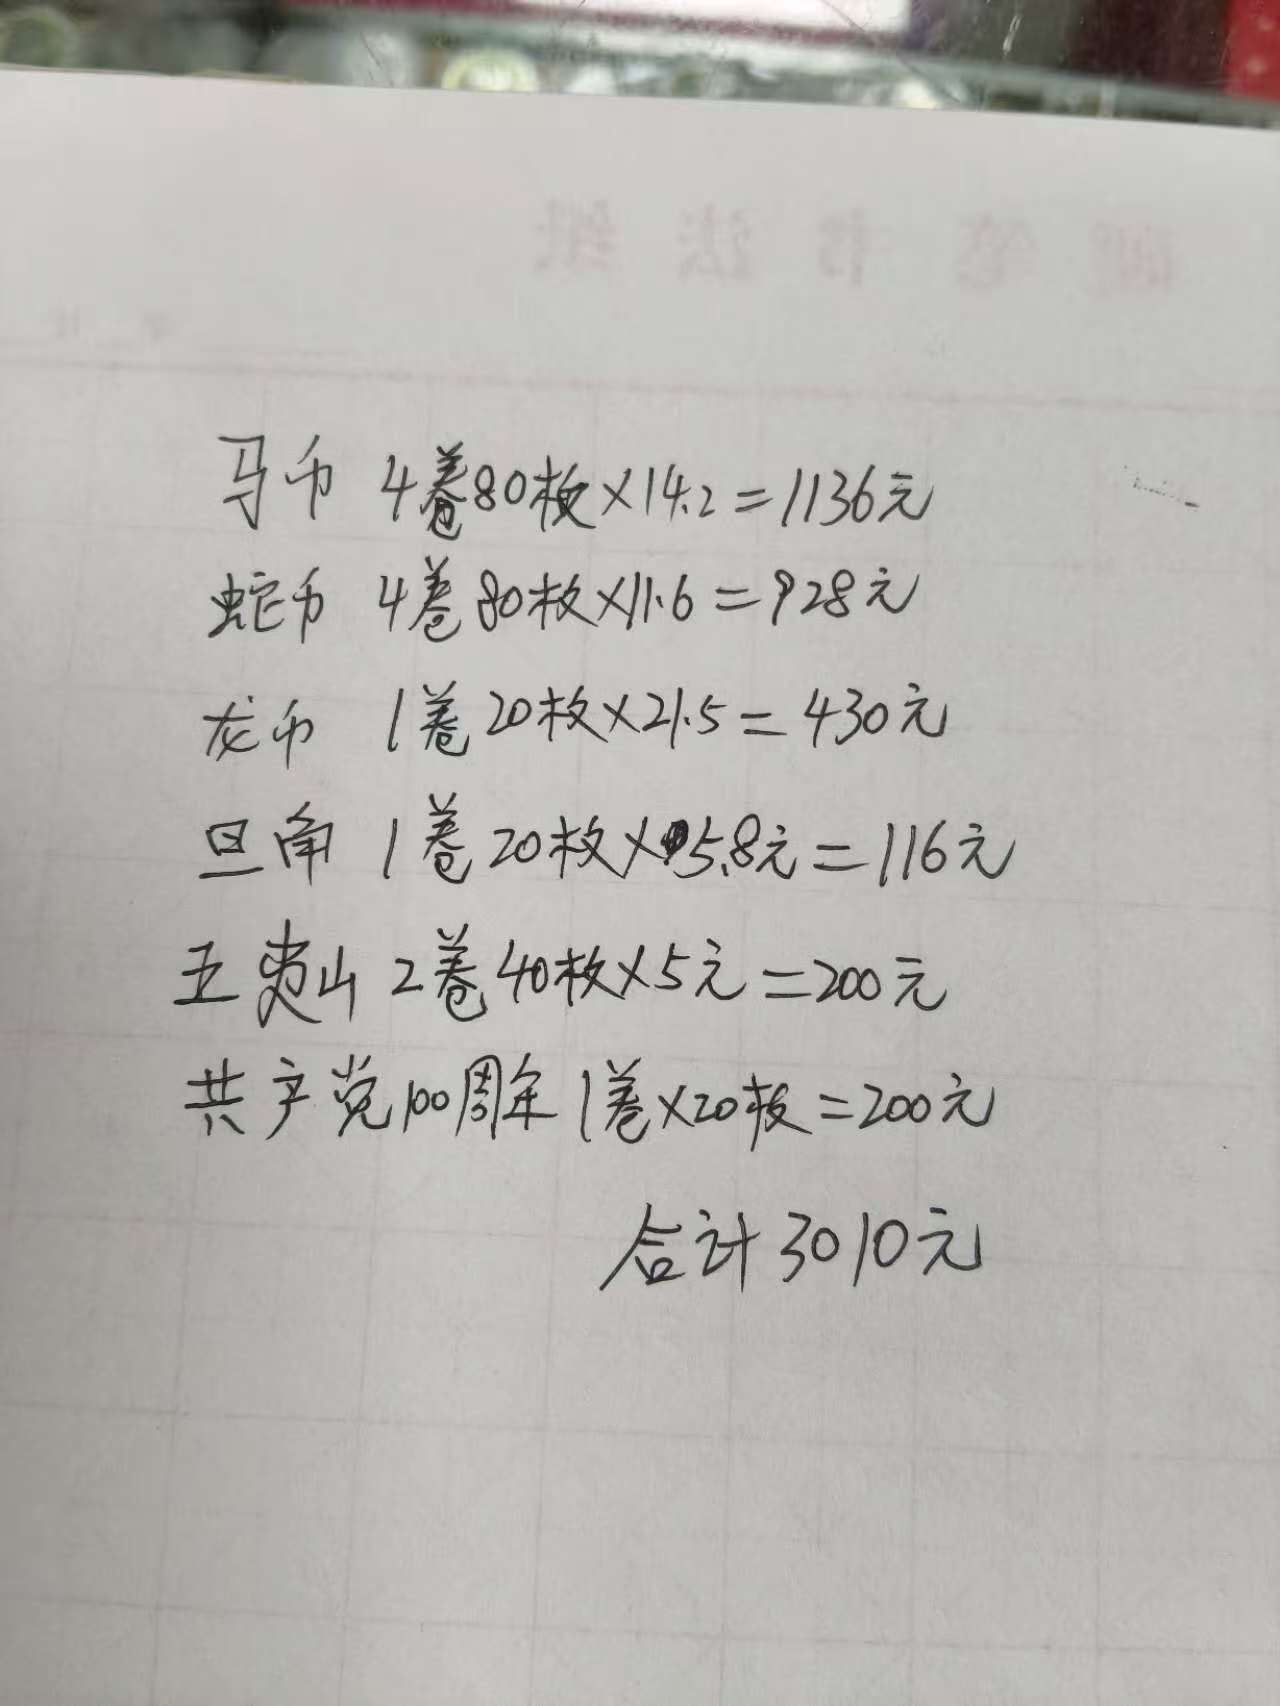 硬笔书法纸
马币 4卷80枚×14.2=1136元
蛇币 4卷80枚×11.6=928元
龙币 1卷20枚×21.5=430元
旦角 1卷20枚×5.8元=116元
五夷山 2卷40枚×5元=200元
共产党100周年1卷×20枚=200元
合计3010元